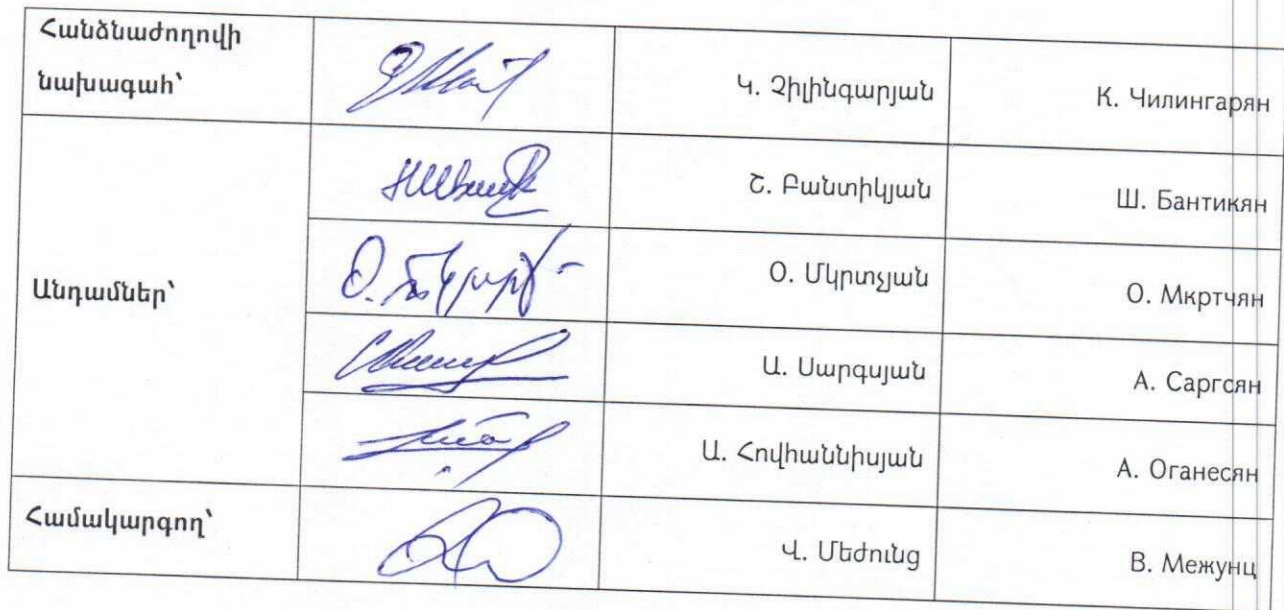 Հանձնաժողովի
նախագահ՝
Կ. Չիլինգարյան
К. Чилингарян
Շ. Բանտիկյան
Ш. Бантикян
Անդամներ՝
Օ. Մկրտչյան
О. Мкртчян
Ա. Սարգսյան
А. Саргсян
Ա. Հովհաննիսյան
А. Оганесян
Համակարգող՝
Վ. Մեժունց
В. Межунц